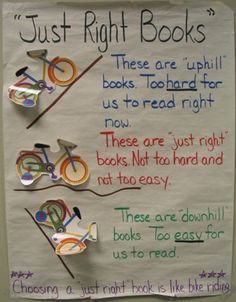 "Just Right Books"
These are "uphill"
books. Too hard for
us to read right
now.
These are "just right"
books. Not too hard and
not too easy.
These are "downhill"
books. Too easy for
us to read.
***Choosing a "just right" book is like bike riding.***